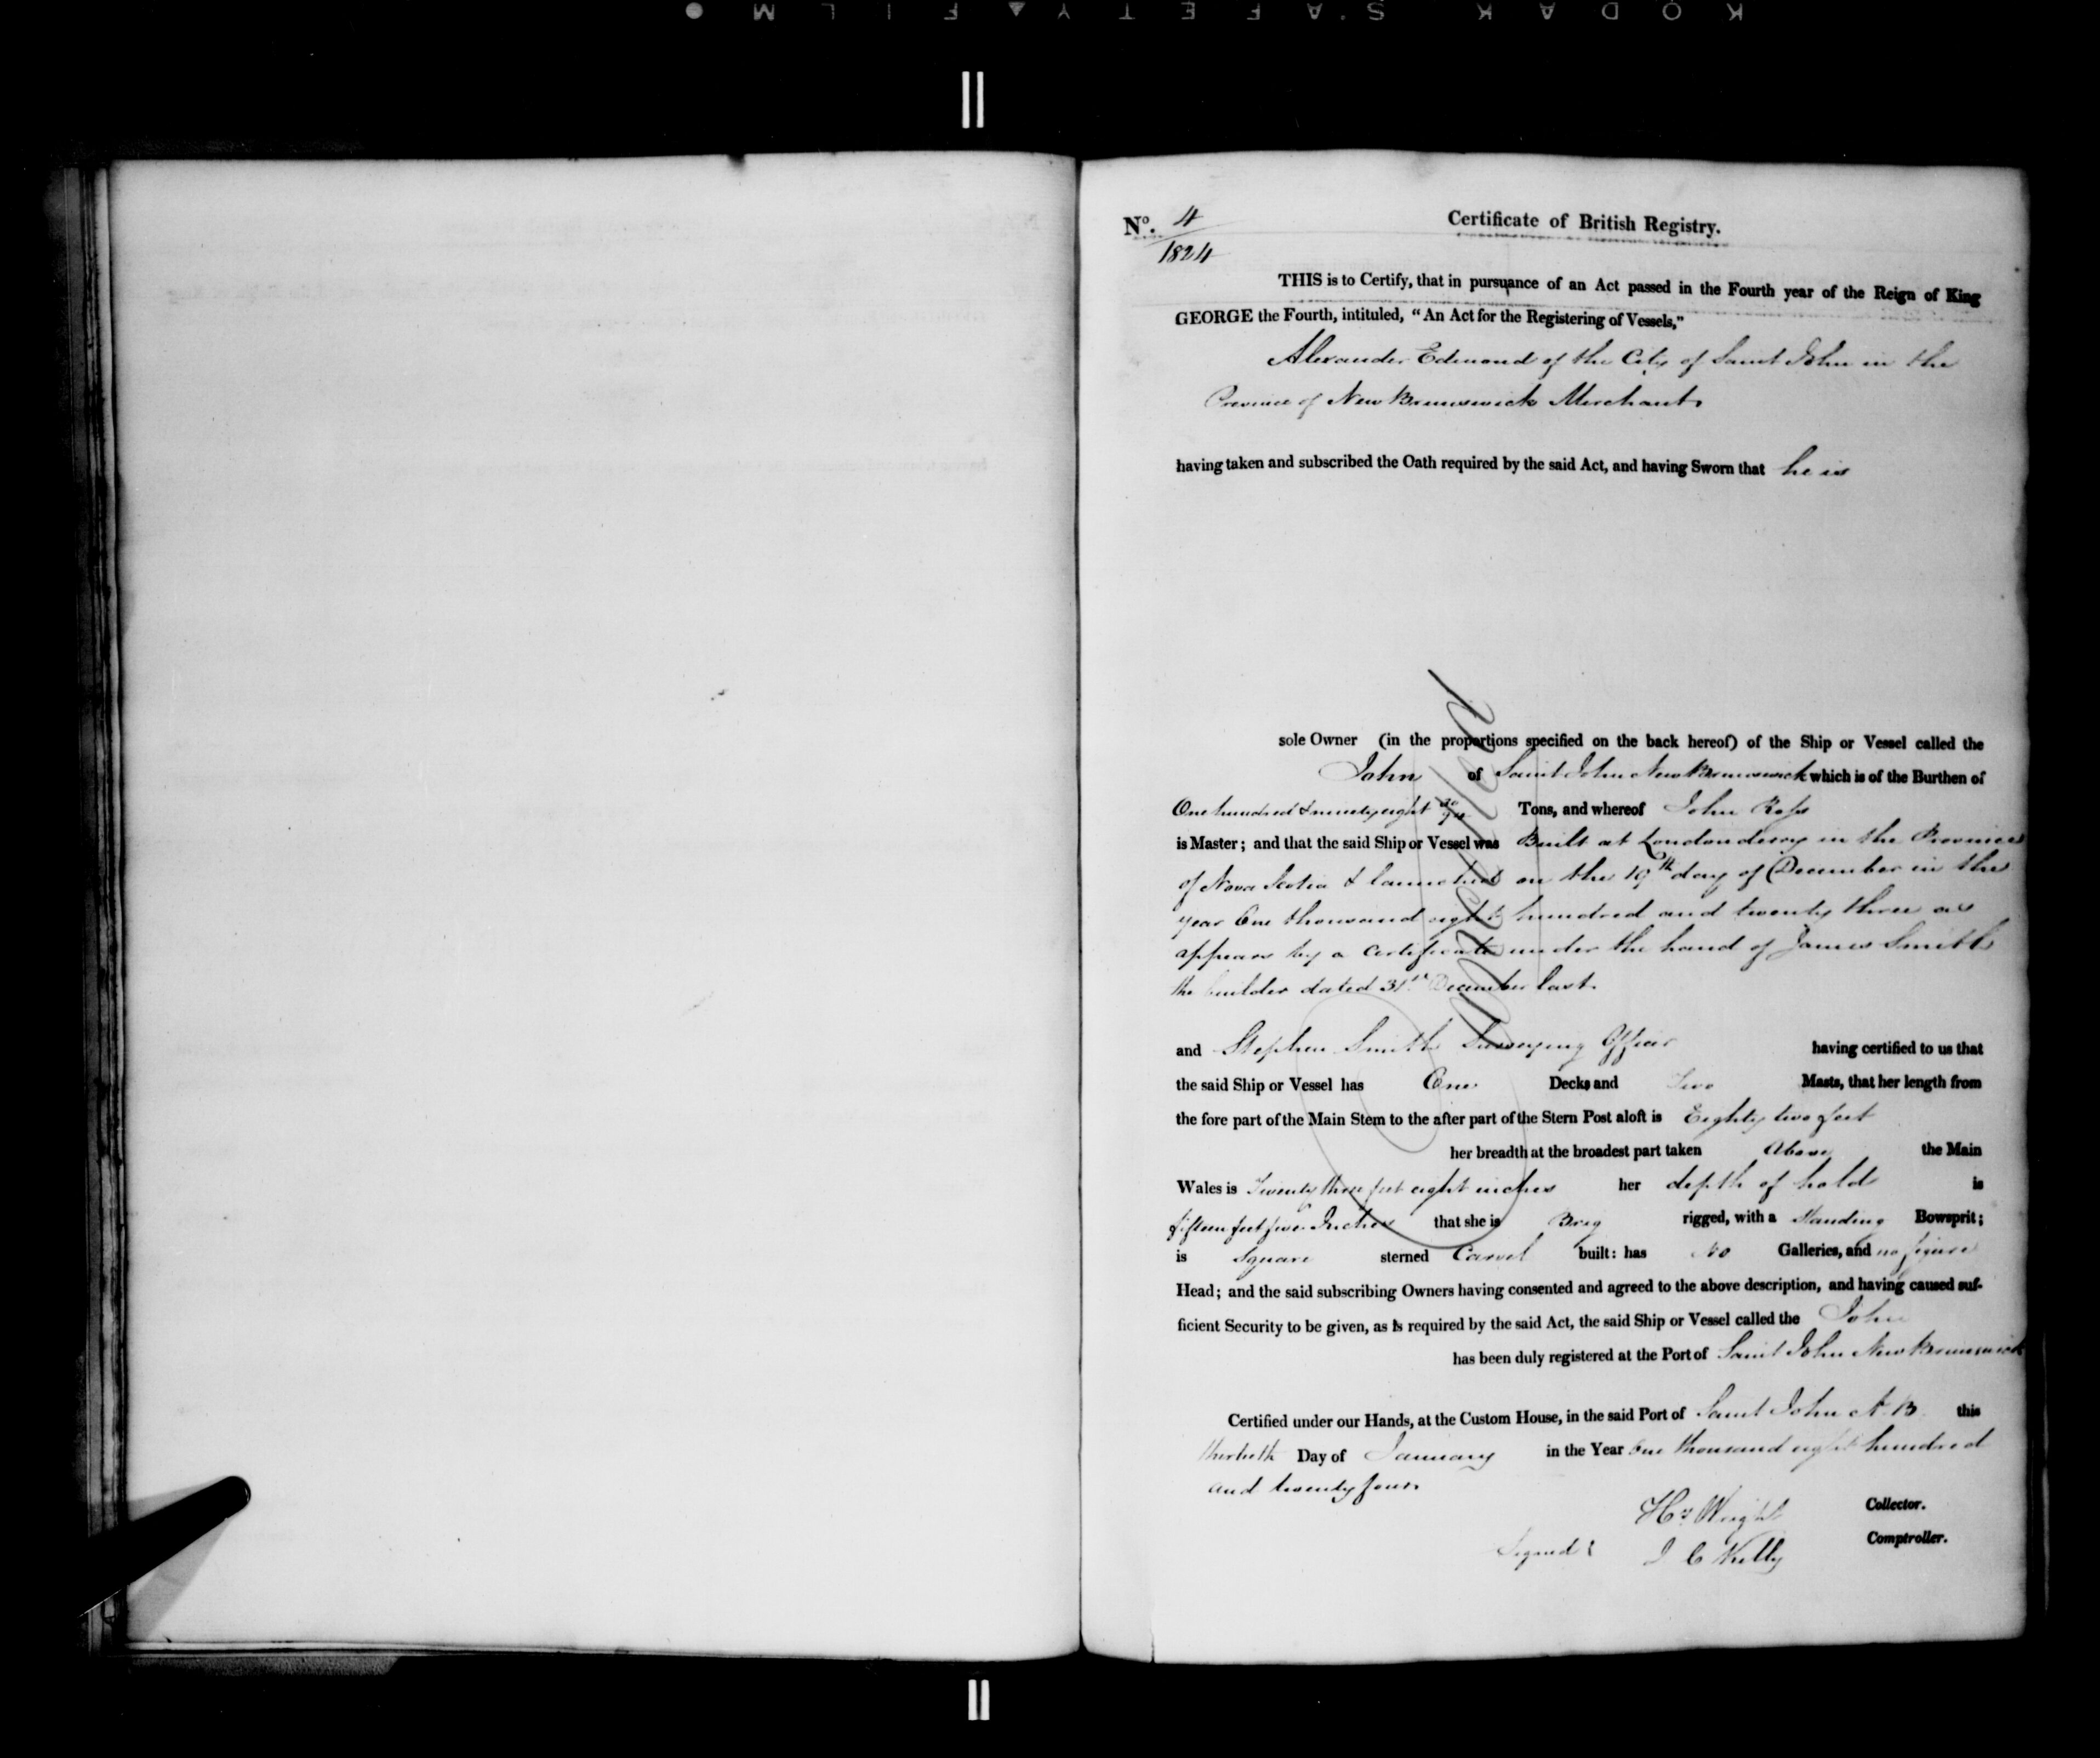 KODAK SAFETY FILM
Nº. 4
1824
Certificate of British Registry.
THIS is to Certify, that in pursuance of an Act passed in the Fourth year of the Reign of King
GEORGE the Fourth, intituled, "An Act for the Registering of Vessels,"
Alexander Edmond of the City of Saint John in the
Province of New Brunswick Merchant
having taken and subscribed the Oath required by the said Act, and having Sworn that he is
sole Owner (in the proportions specified on the back hereof) of the Ship or Vessel called the
John of Saint John New Brunswick which is of the Burthen of
One hundred & ninety eight Tons, and whereof John Ross
is Master; and that the said Ship or Vessel was Built at Londonderry in the Province
of Nova Scotia & launched on the 19th day of December in the
year One thousand eight hundred and twenty three as
appears by a certificate under the hand of James Smith
the builder dated 31st December last.
Cancelled
and Stephen Smith Surveying Officer having certified to us that
the said Ship or Vessel has One Decks and Two Masts, that her length from
the fore part of the Main Stem to the after part of the Stern Post aloft is Eighty two feet
her breadth at the broadest part taken Above the Main
Wales is Twenty three feet eight inches her depth of hold is
fifteen feet five Inches that she is Brig rigged, with a Standing Bowsprit;
is Square sterned Carvel built: has No Galleries, and no figure
Head; and the said subscribing Owners having consented and agreed to the above description, and having caused suf-
ficient Security to be given, as is required by the said Act, the said Ship or Vessel called the John
has been duly registered at the Port of Saint John New Brunswick
Certified under our Hands, at the Custom House, in the said Port of Saint John N.B. this
thirtieth Day of January in the Year One thousand eight hundred
and twenty four.
Hy Wright Collector.
Signed J C Kelly Comptroller.